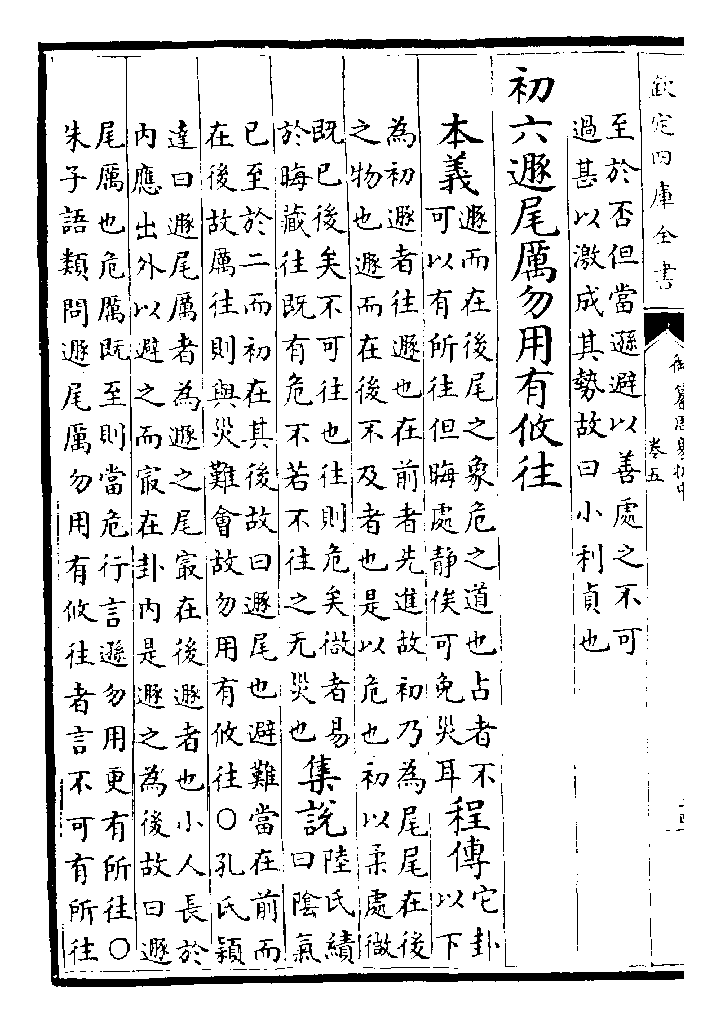 欽定四庫全書
御纂周易折中
卷五
至於否但當遜避以善處之不可
過甚以激成其勢故曰小利貞也
初六遯尾厲勿用有攸往
本義
遯而在後尾之象危之道也占者不
可以有所往但晦處静俟可免災耳
程傳
它卦
以下
為初遯者往遯也在前者先進故初乃為尾尾在後
之物也遯而在後不及者也是以危也初以柔處微
既已後矣不可往也往則危矣微者易
於晦藏往既有危不若不往之无災也
集說
陸氏績
曰陰氣
已至於二而初在其後故曰遯尾也避難當在前而
在後故厲往則與災難會故勿用有攸往○孔氏穎
達曰遯尾厲者為遯之尾㝡在後遯者也小人長於
内應出外以避之而㝡在卦内是遯之為後故曰遯
尾厲也危厲既至則當危行言遜勿用更有所往○
朱子語類問遯尾厲勿用有攸往者言不可有所往